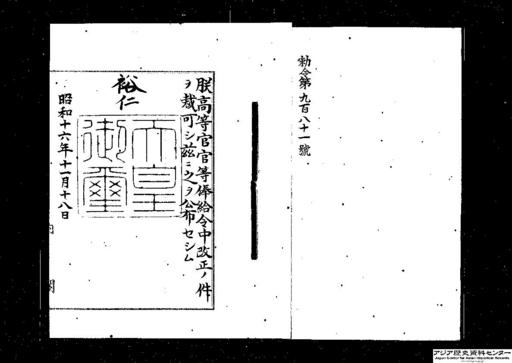 勅令第九百八十一號
朕高等官官等俸給令中改正ノ件
ヲ裁可シ茲ニ之ヲ公布セシム
裕仁
天皇
御璽
昭和十六年十一月十八日
内閣
アジア歴史資料センター
Japan Center for Asian Historical Records